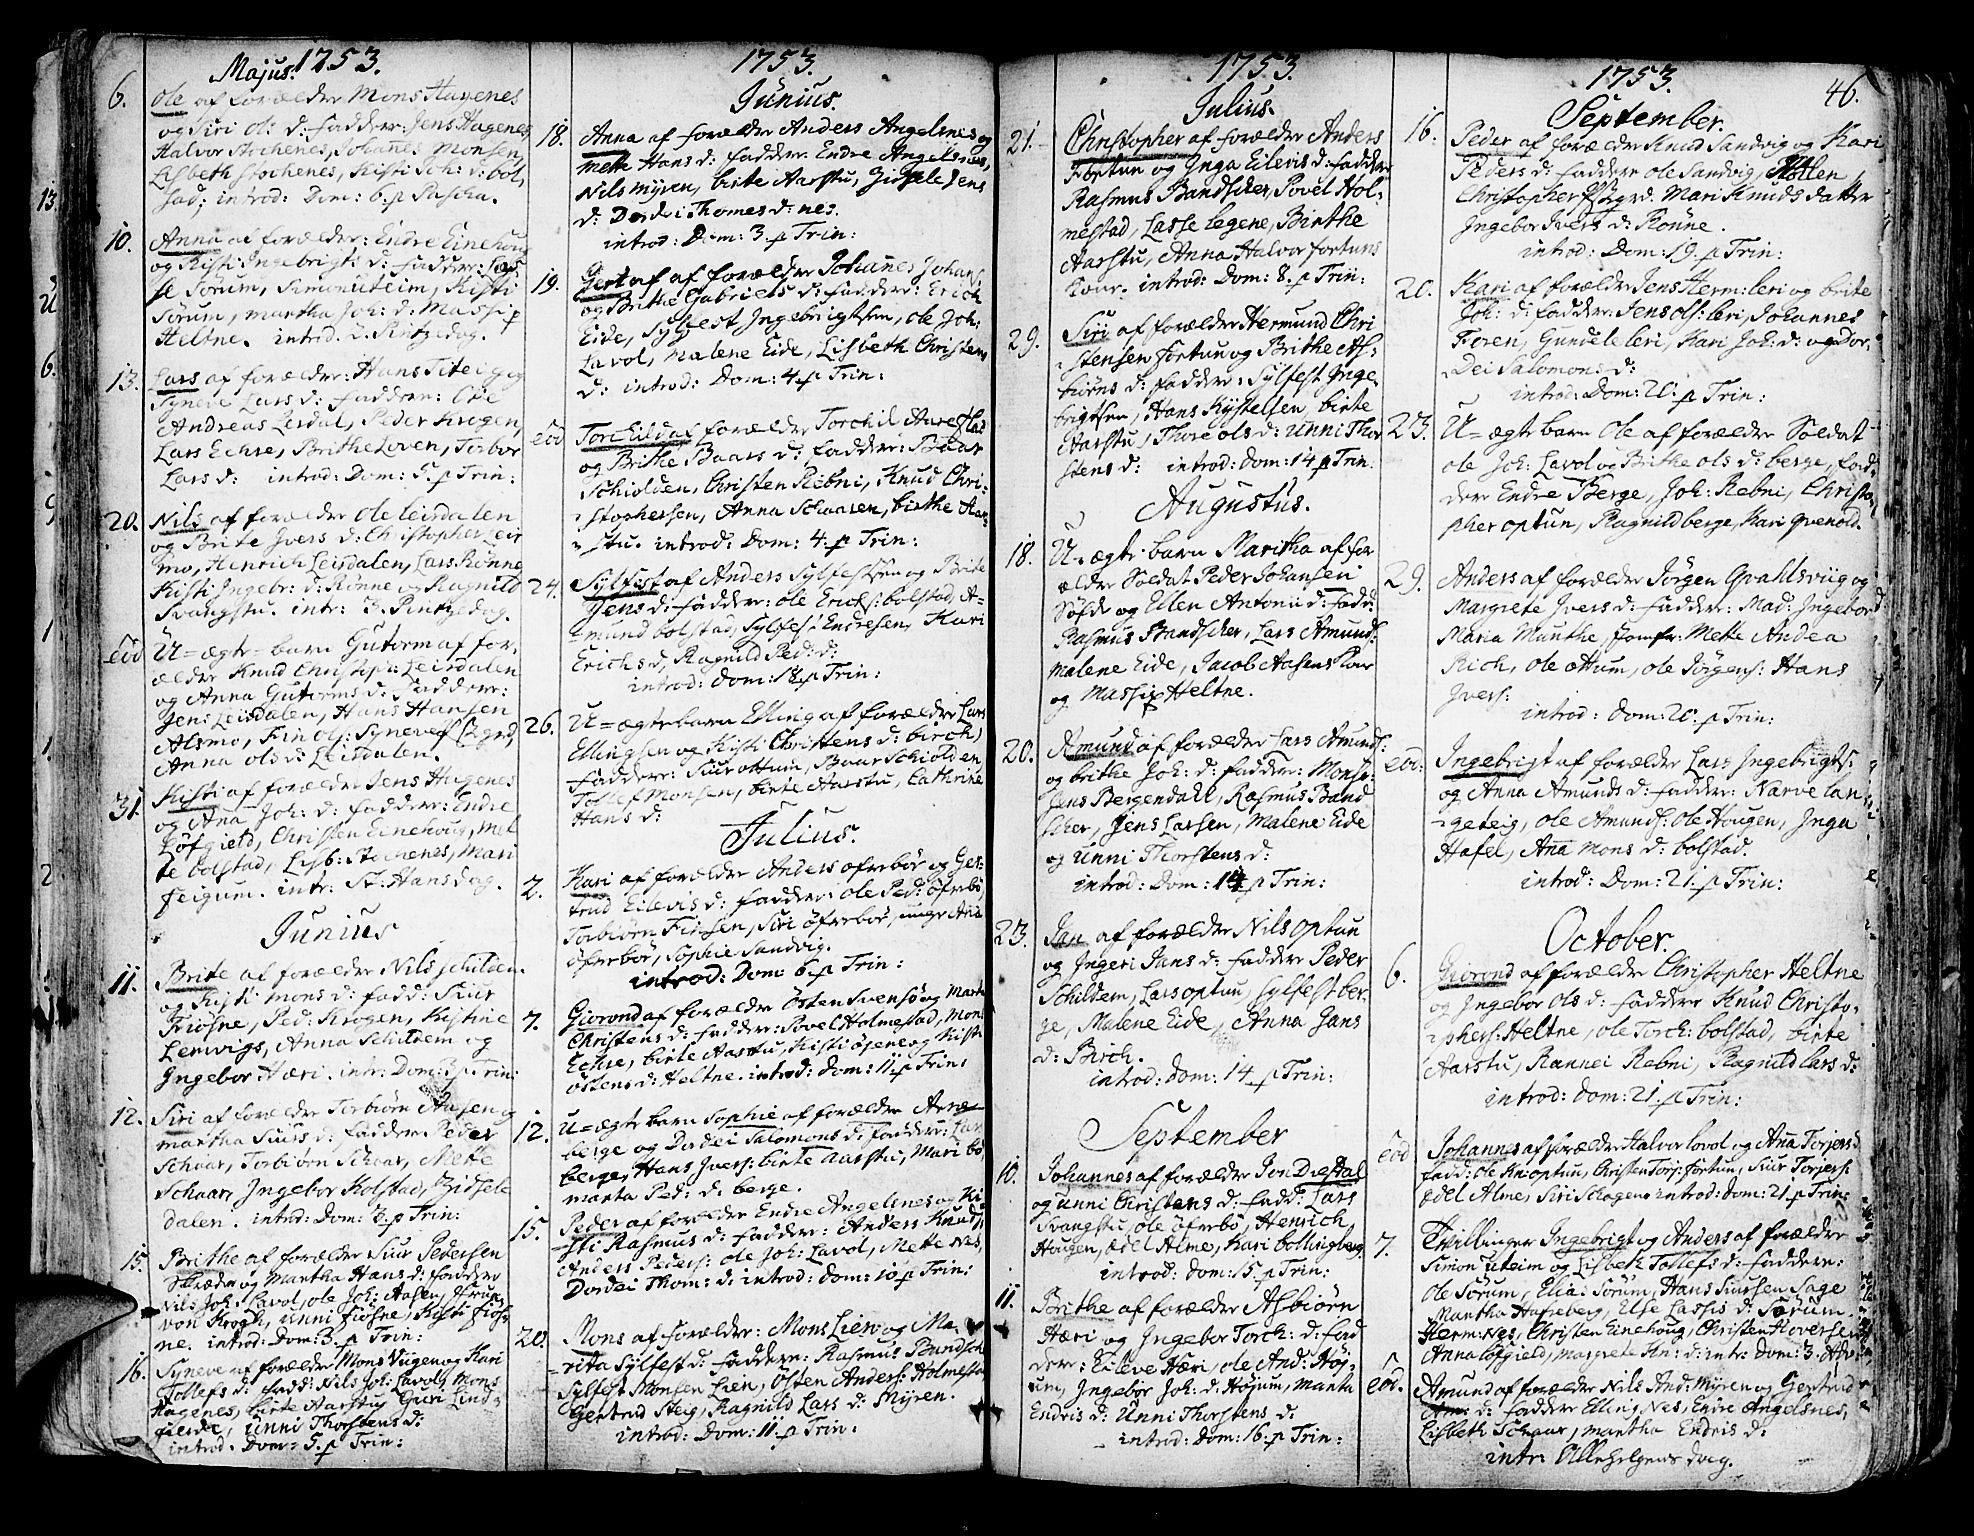 1753.
Majus.
6. Ole af forældre Mons Hagenes
og Siri Ol: d: faddere: Jens Hagenes
Halvor Stochenes, Johanes Monsen,
Lisbeth Stochenes, Kisti Joh: d: bol,
stad; introd: Dom: 6. p Pascha.
10. Anna af forældre: Endre Einehoug
og Kisti Ingebrigts d: faddere: Las,
se Sorum, Simon uteim, Kisti
Sorum, Martha Joh: d: Massip
Heltne. introd. 2. Pintzedag.
13. Lars af forældre: Hans Titeig og
Syneve Lars d: faddere: Ole
Andreas Lerdal, Peder Krogen,
Lars Echre, Brithe Loven, Torbor
Lars d: introd: Dom: 5. p Trin:
20. Nils af forældre Ole leirdalen
og Brite Ivers d: Christopher Leir
mo, Henrich Leirdalen, Lars Rønne
Kisti Ingebr: d: Rønne og Ragnild
Svangstu. intr: 3. Pintzedag.
eod U=ægte=barn Gutorm af for,
ældre Knud Christop: Leirdalen
og Anna Gutorms d: Faddere:
Jens Leirdalen, Hans Hansen
Alsmo, Fin ols: Syneve
Anna ols d: Leirdalen.
31. Kisti af forældre Jens Hagenes
og Ana Joh: d: faddere: Endre
Løfgield, Christen Einehoug, Met
te bolstad, Lisb: Stochenes, Mari
feigum. intr: St: Hansdag.
Junius
11. Brite af forældre Nils Schildem
og Kisti Mons d: fadd: Siur
Friøsne, Ped: Krogen, Kistine
Lemvigs, Anna Schildem og
Ingebor Hæri. intr: Dom: 3 p Trin:
12. Siri af forældre Torbiørn Aasen og
Martha Siurs d: faddere Peder
Schaar, Torbiørn Schaar, Mette
Schaar, Ingebor Kolstad, Zidsele
dalen. introd: Dom: 3. p Trin:
15. Brithe af forældre Siur Pedersen
og Martha Hans d: faddere
Nils Joh: Lavol, ole Joh: Aasen, Frue
von Krogh, Unni fiøsne, Kisti fiøs,
ne. introd: Dom: 3. p Trin:
16. Syneve af forældre Mons Viigen og Kari
Tollefs d: fadd: Nils Joh: Lavol, Mons
Hagenes, birte Aarstu, Guri Lind=
fierde, Unni Thorstens d:
introd. Dom: 5. p Trin:
1753.
Junius.
18. Anna af forældre Anders Angelsnes og
Mette Hans d: faddere: Endre Angelsnes,
Nils Myren, birte Aarstu, Zidsele Jens
d: Dordei Thomes d: nes.
introd: Dom: 3. p Trin:
19. Gert af forældre Johanes Johans:
og Brithe Gabriels d: faddere: Erich
Eide, Sylfest Ingebrigtsen, ole Joh:
Lavol, Malene Eide, Lisbeth Christens
d: introd: Dom: 4. p Trin:
eod Torchild af forældre Torchil
og Brithe Baars d: faddere: Baar
Schiolden, Christen Rebni, Knud Chri=
stophersen, Anna Schaasen, birthe Aar=
stu. introd: Dom: 4. p Trin:
24. Sylfest af Anders Sylfestsen og Brite
Jens d: faddere: ole Erichs: bolstad, A=
mund bolstad, Sylfest Endresen, Kari
Erichs d, Ragnild Ped: d:
introd: Dom: p Trin:
26. U=ægte barn Elling af forældre Lars
Ellingsen og Kisti Christens d: birch,
faddere: Siur ottum, Baar Schiolden,
Tollef Monsen, birte Aarstu, Cathrine
Hans d:
Julius.
2. Kari af forældre Anders ofrebøe og Ger=
trud Eilevis d: faddere: ole Ped: öfrebø,
Torbiørn Finsen, Siri öfrebøe, unge Ana
öfrebør, Sophie Sandvig.
introd: Dom: 6. p Trin:
7. Giørond af forældre Östen Svensø og Marte
Christens d: faddere: Povel Holmestad, Mons
Echre, birte Aarstu, Kisti øyene og Kisti
östens d: Heltne. introd: Dom: 11. p Trin:
12. U=ægte barn Sophie af forældre Arne
berge og Dordei Salomons d: faddere: Lar
berge, Hans Ivers: birte aarstu, Mari bø
marta Ped: d: berge.
15. Peder af forældre Endre Angelsnes og Ki,
sti Rasmus d: faddere: Anders Knuds,
Anders Peders: ole Joh: Lavol, Mette Nes,
Dordei Thom: d: introd: Dom: 10. p Trin:
20. Mons af forældre: Mons Lien og Ma=
rita Sylfest d: faddere: Rasmus Bandsch
Sylfest Monsen Lien, Östen Anders: Holmestad
Gertrud Steig, Ragnild Lars d: Myren.
introd: Dom: 11. p Trin:
1753.
Julius.
21. Christopher af forældre Anders
Fortun og Inga Eilevis d: faddere
Rasmus Bandscher, Povel Hol=
mestad, Lasse legene, Birthe
Aarstu, Anna Halvor fortuns
Kone. introd: Dom: 8. p Trin:
29. Siri af forældre Hermund Chri
stensen Fortun og Brithe As=
biørns d: faddere: Sylfest Inge,
brigtsen, Hans Kystelsen, birte
Aarstu, Thore ols d: Unni Thor
stens d: introd: Dom: 14 p Trin:
Augustus.
18. U=ægte barn Maritha af for
ældre Soldat Peder Johansen
Sølde og Ellen Antonii d: fadd:
Rasmus Bandscher, Lars Amunds:
Malene Eide, Jacob Aasens Kone
og Massip Heltne.
20. Amund af forældre Lars Amunds:
og brithe Joh: d: faddere: Monsr
Jens Bergendahl, Rasmus Band
scher, Jens Larsen, Malene Eide
og Unni Thorstens d:
introd: Dom: 14 p Trin:
23. Jan af forældre Nils optun
og Ingeri Jans d: faddere Peder
Schildem, Lars optun, Sylfest ber,
ge, Malene Eide, Anna Jans
d: Birch.
introd: Dom: 14 p Trin:
September
10. Johannes af forældre Jon Dregdal
og Unni Christens d: fadd: Lars
Svangstu, ole öfrebø, Henrich
Hougen, Edel Alme, Kari bollingberg
introd: Dom: 15. p Trin:
11. Brithe af forældre Asbiörn
Hæri og Ingebor Torch: d: fad
dere: Eileve Hæri, ole And: Høy=
um, Ingebor Joh: d: Høyum, Marta
Endris d: Unni Thorstens d.
introd: Dom: 16. p Trin:
1753.
46.
September.
16. Peder af forældre Knud Sandvig og Kari
Peders d: faddere ole Sandvig,
Christopher Mari Knuds datter
Ingebor Ivers d: Rønne.
introd: Dom: 19. p Trin:
20. Kari af forældre Jens Herm: leri og brite
Joh: d: faddere: Jens ols: leri, Johannes
Foren, Gundele leri, Kari Joh: d: og dor,
dei Salomons d:
introd: Dom: 20: p Trin:
23. U=ægte barn Ole af forældre Soldat
ole Joh: Lavol og Brithe ols d: berge, fad,
dere Endre Berge, Joh: Rebni, Christo,
pher optun, Ragnild berge, Kari Qvenold.
29. Anders af forældre Jørgen Qvahlsviig og
Margrete Ivers d: faddere: Mad: Ingebor
Maria Munthe, Jomfr: Mette Andea
Rich, ole ottum, ole Jørgens: Hans
Ivers:
introd: Dom: 20. p Trin:
eod: Ingebrigt af forældre Lars Ingebrigts:
og Anna Amunds d: faddere: Narve lan=
geteig, ole Amunds: ole Hougen, Inga
Hafel, Ana Mons d: bolstad.
introd: Dom: 21. p Trin:
October.
6. Giørond af forældre Christopher Heltne
og Ingebor ols d: faddere Knud Christo=
phers: Heltne, ole Torch: bolstad, birte
Aarstu, Rannei Rebni, Ragnild Lars d:
introd: Dom: 21. p Trin:
eod Johannes af forældre Halvor lovol og Ana Torjers d
fadd: ole Kn: optun, Christen Torj: fortun, Siur Torjers:
Edel Alme, Siri Schagen introd: Dom: 21. p Trin:
7. Tvillinger Ingebrigt og Anders af forældre
Simon uteim og Lisbeth Tollefs d: faddere:
ole Sørum, Elia: Sørum, Hans Siursen Sage
Martha Hafreberg, Else Lassis d: Sørum.
Herm: Nes, Christen Einehoug, Christen Hoversen
Anna löfgield, Margrete An: d: intr: Dom: 3. Adv:
eod. Amund af forældre Nils And: Myren og Gertrud
Am: d: faddere Elling Nes, Endre Angelsnes,
Lisbeth Schaar, Martha Endris d:
intr: Allehelgens dag.